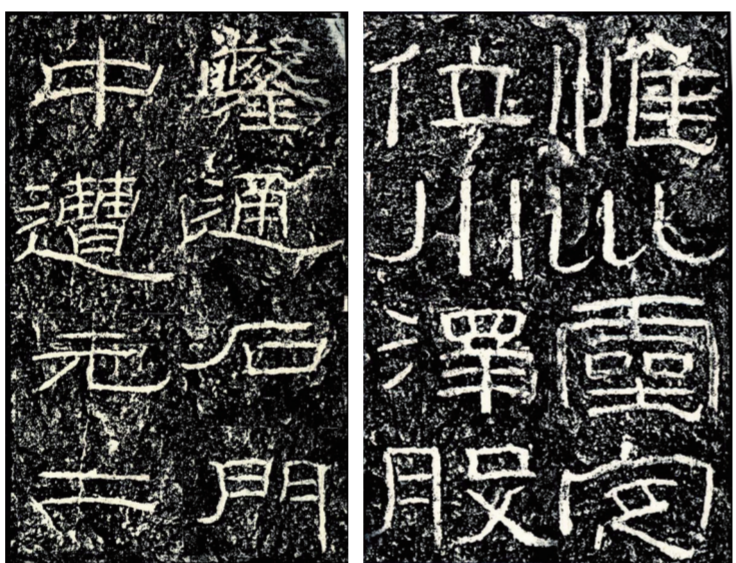 惟巛靈定
位川澤股
鑿通石門
中遭元二